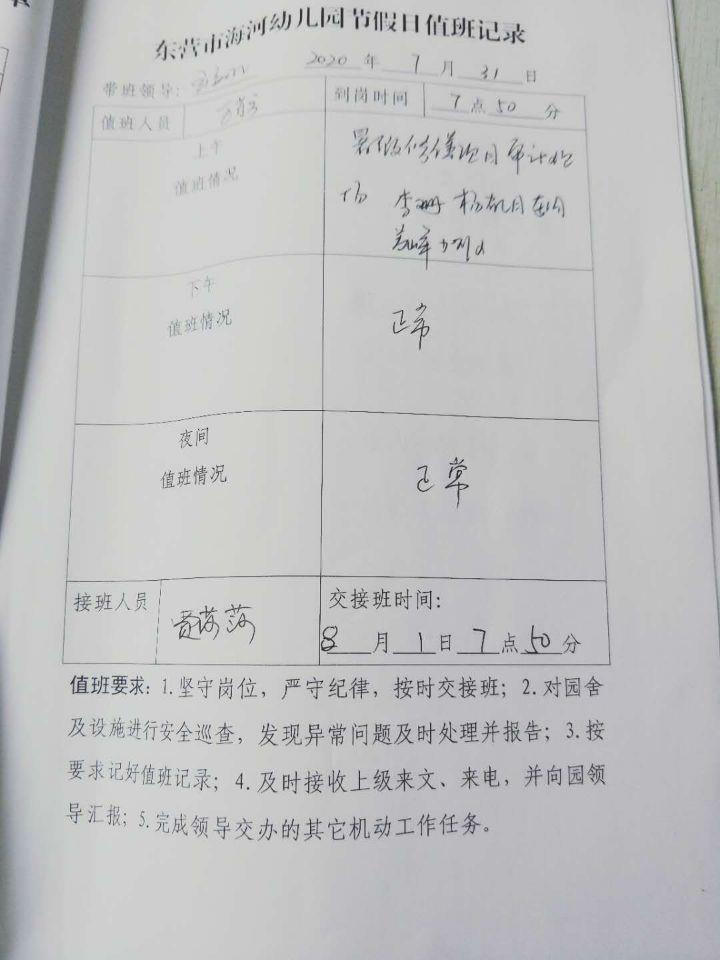 东营市海河幼儿园节假日值班记录
2020年7月31日
带班领导:
到岗时间 7点50分
值班人员
上午
值班情况
暑假修缮项目审计
李珊
下午
值班情况
正常
夜间
值班情况
正常
接班人员
交接班时间:
8月1日7点50分
值班要求: 1.坚守岗位，严守纪律，按时交接班; 2.对园舍
及设施进行安全巡查，发现异常问题及时处理并报告; 3.按
要求记好值班记录; 4.及时接收上级来文、来电，并向园领
导汇报; 5.完成领导交办的其它机动工作任务。